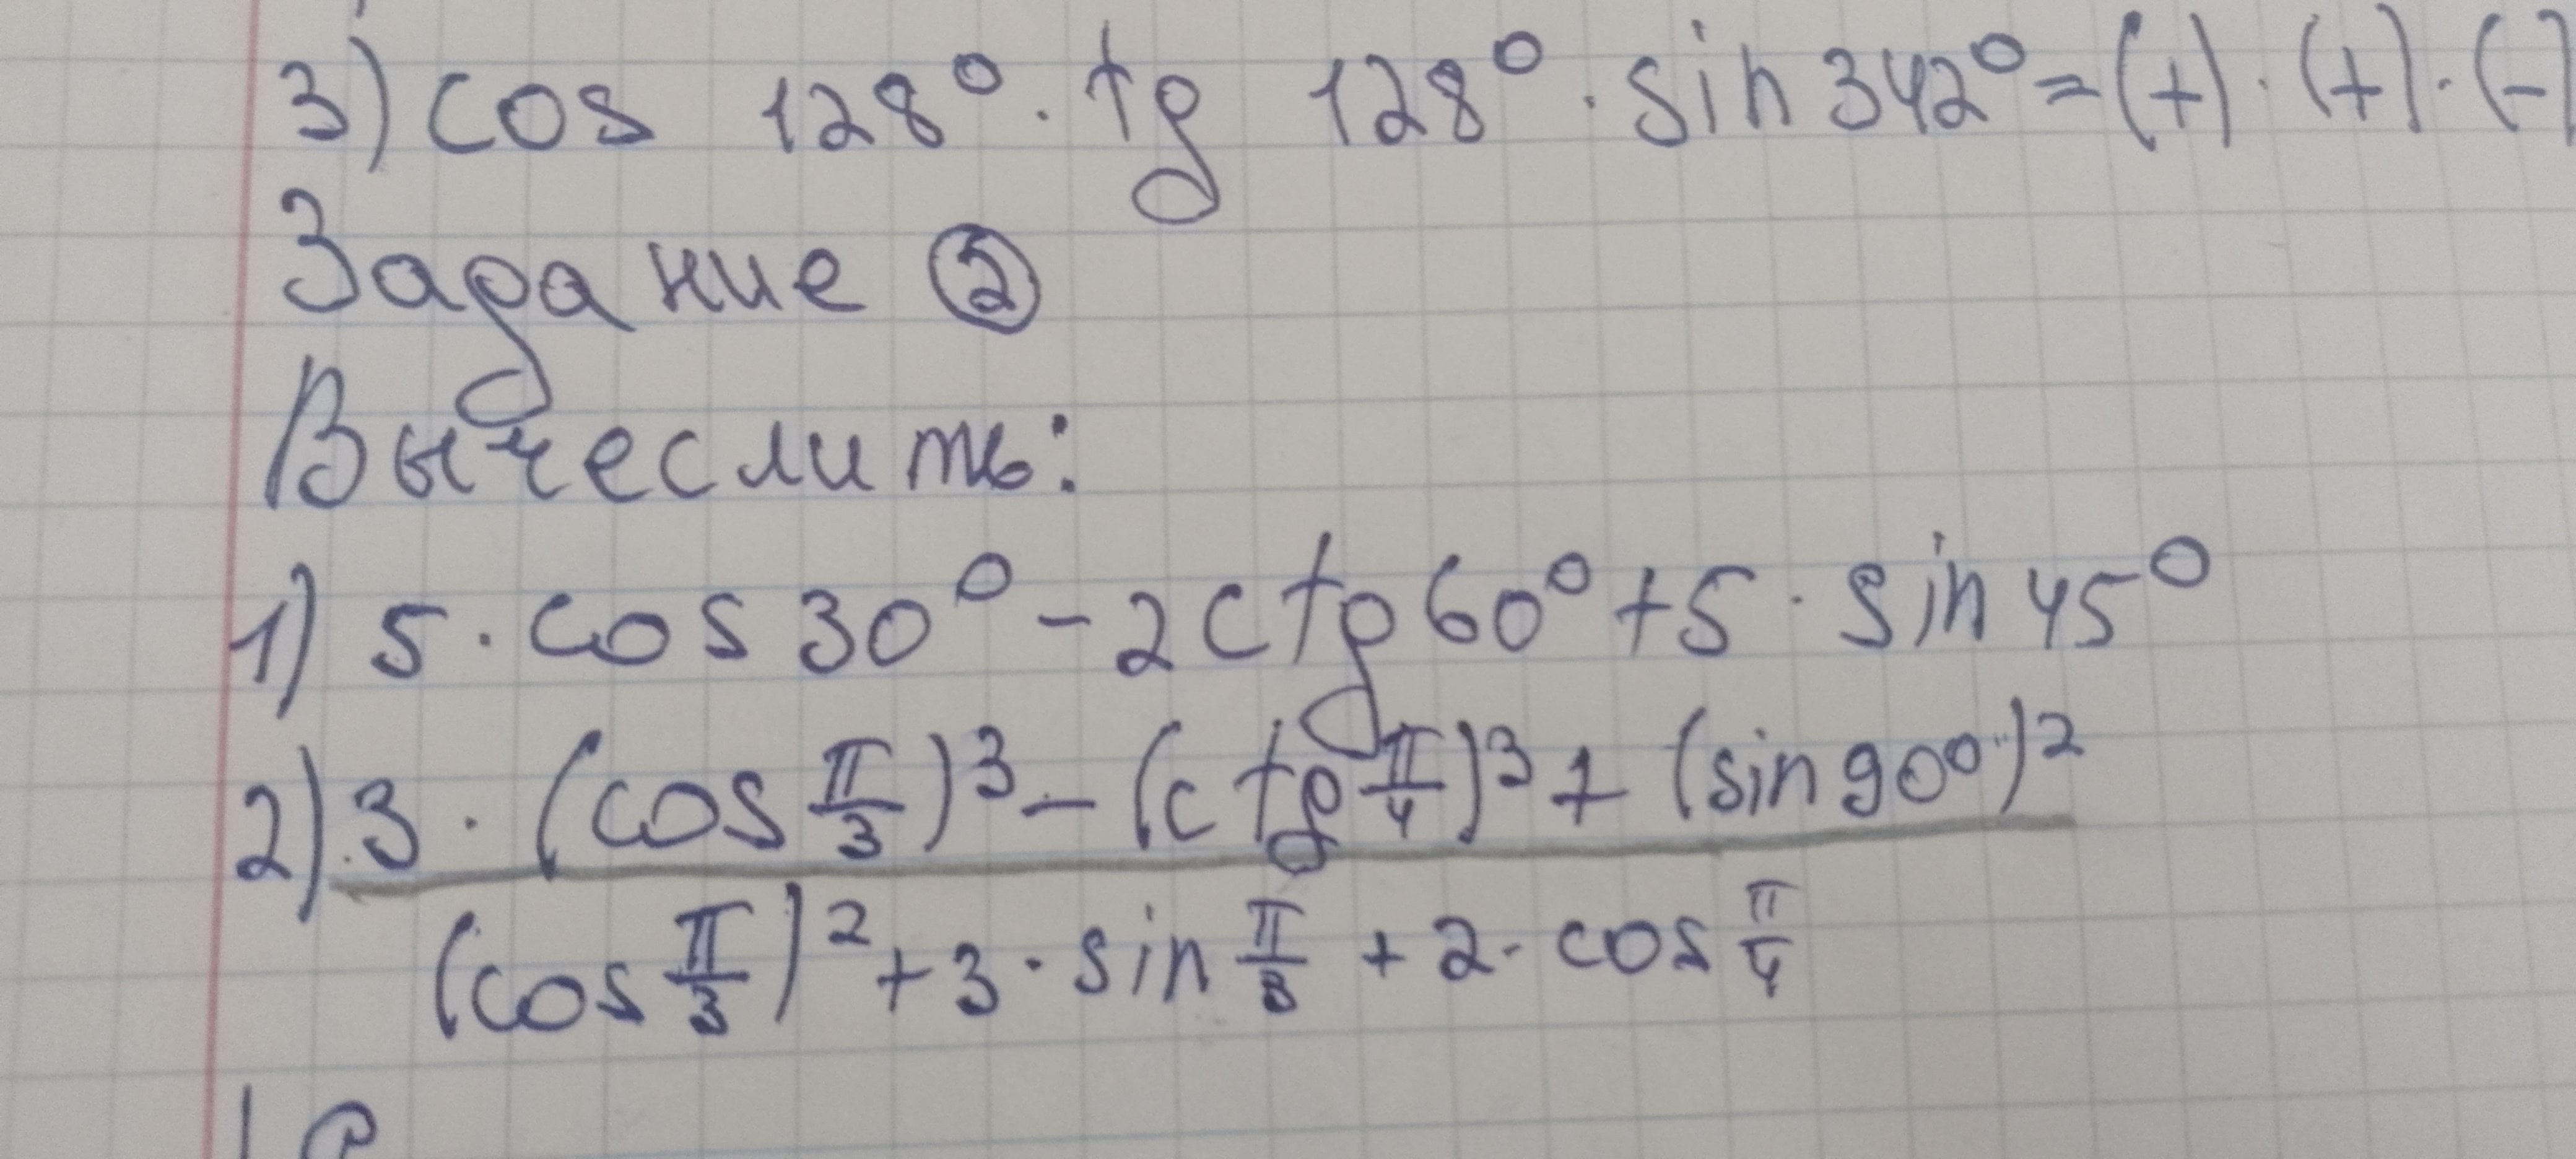 3) cos 128° · tg 128° · sin 342° = (+) · (+) · (-)
Задание ②
Вычеслить:
1) 5 · cos 30° - 2 ctg 60° + 5 · sin 45°
2) 3 · (cos π/3)³ - (ctg π/4)³ + (sin 90°)²
(cos π/3)² + 3 · sin π/3 + 2 · cos π/4